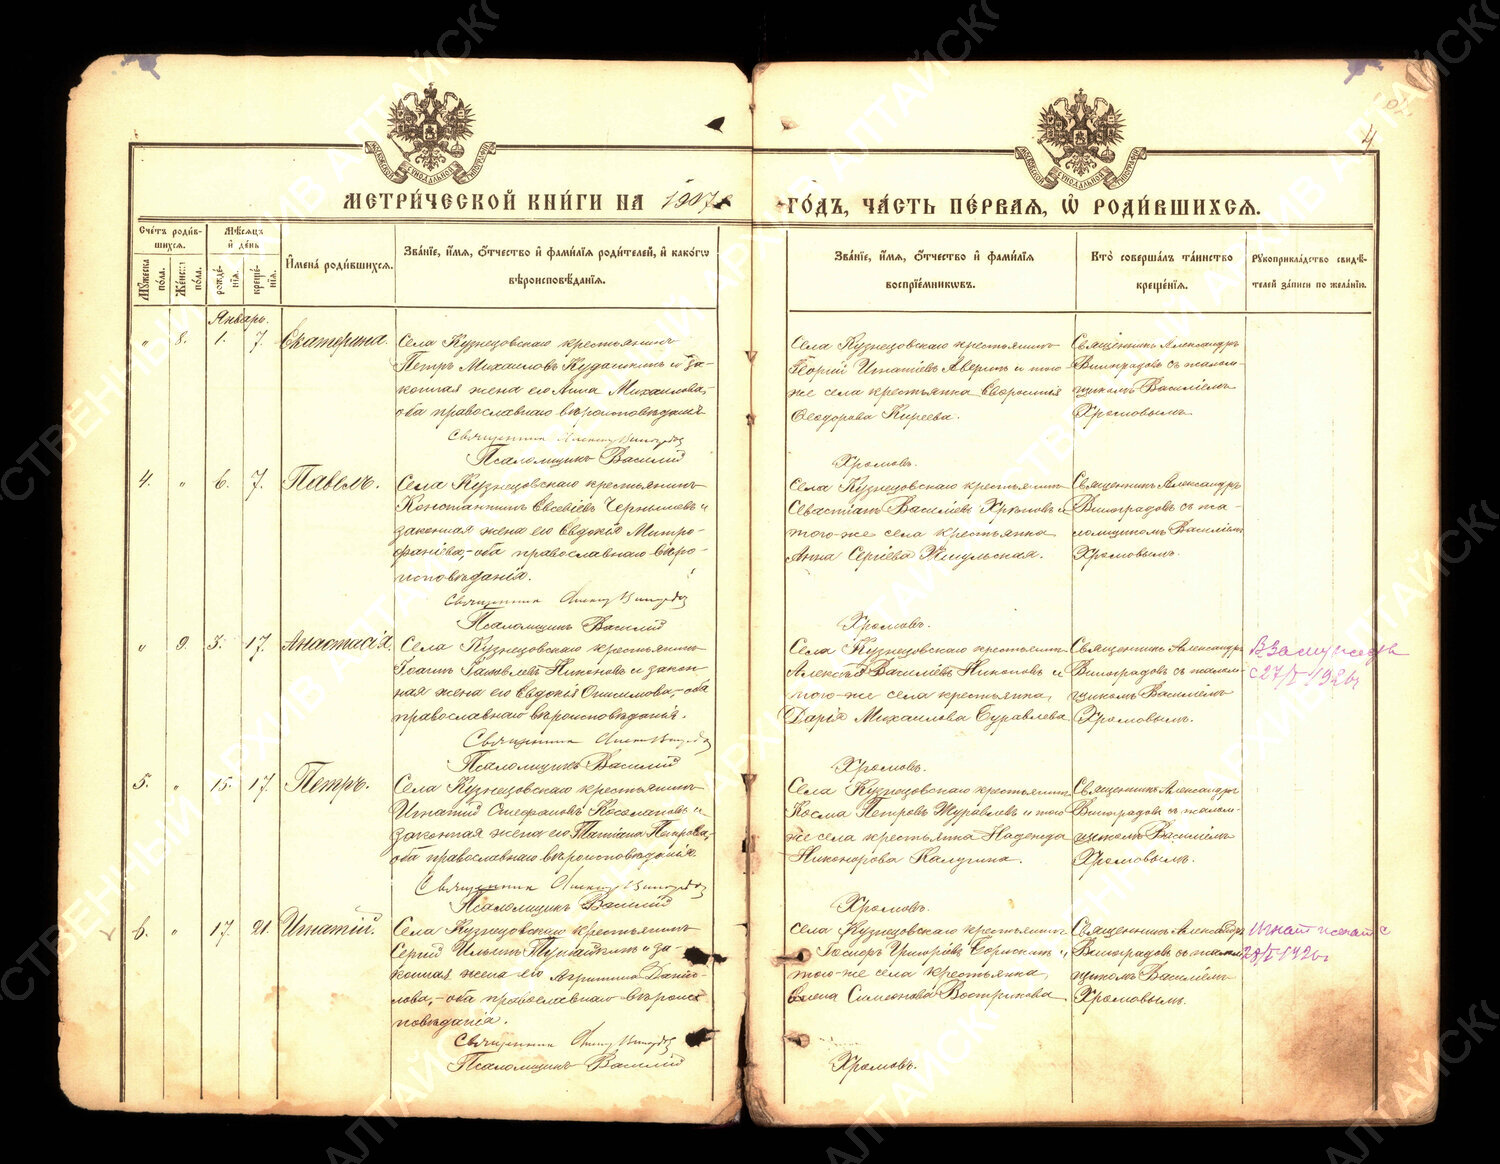 4
МЕТРИ́ЧЕСКОЙ КНИ́ГИ НА 1907
ГО́ДЪ, ЧА́СТЬ ПЕ́РВАЯ, Ѡ РОДИ́ВШИХСЯ.
Сче́тъ роди́вшихся.
Му́жеска по́ла.
Же́нска по́ла.
Мѣ́сяцъ и́ де́нь
рожде́нія.
креще́нія.
И́мена роди́вшихся.
Зва́ніе, и́мя, о́тчество и́ фами́лія роди́телей, и́ како́гѡ
вѣроисповѣ́данія.
Зва́ніе, и́мя, о́тчество и́ фами́лія
воспріе́мниковъ.
Кто̀ соверша́лъ та́инство
креще́нія.
Рꙋкоприкла́дство свидѣ́телей за́писи по жела́нію.
Январь.
" 8. 1. 7. Екатерина.
Села Кузнецовскаго крестьянинъ
Петръ Михаиловъ Кудашкинъ и за-
конная жена его Анна Михаилова,
оба православнаго вѣроисповѣданія.
Священникъ
Псаломщикъ Василій
Села Кузнецовскаго крестьянинъ
Георгій Игнатіевъ Аверинъ и того
же села крестьянка Евфросинія
Ѳеодорова Киреева.
Хромовъ.
Священникъ Александръ
Виноградовъ съ псалом-
щикомъ Василіемъ
Хромовымъ.
4. " 6. 7. Павелъ.
Села Кузнецовскаго крестьянинъ
Константинъ Евсевіевъ Чернышевъ и
законная жена его Евдокія Митро-
фаніева,-оба православнаго вѣро-
исповѣданія.
Священникъ
Псаломщикъ Василій
Села Кузнецовскаго крестьянинъ
Севастіанъ Василіевъ Хромовъ и
того-же села крестьянка
Анна Сергіева
Хромовъ.
Священникъ Александръ
Виноградовъ съ пса-
ломщикомъ Василіемъ
Хромовымъ.
" 9. 3. 17. Анастасія.
Села Кузнецовскаго крестьянинъ
Іоаннъ Никоновъ и закон-
ная жена его Евдокія Онисимова,-оба
православнаго вѣроисповѣданія.
Священникъ
Псаломщикъ Василій
Села Кузнецовскаго крестьянинъ
Алексѣй Василіевъ Никоновъ и
того-же села крестьянка,
Дарія Михаилова Журавлева.
Хромовъ.
Священникъ Александръ
Виноградовъ съ псалом-
щикомъ Василіемъ
Хромовымъ.
В замужестве
с 27/I-1926г
5. " 15. 17. Петръ.
Села Кузнецовскаго крестьянинъ
Игнатій Стефановъ Косолаповъ и
законная жена его Татіана Петрова,
оба православнаго вѣроисповѣданія.
Священникъ
Псаломщикъ Василій
Села Кузнецовскаго крестьянинъ
Косма Петровъ Журавлевъ и того
же села крестьянка Надежда
Никонорова Калугина.
Хромовъ.
Священникъ Александръ
Виноградовъ съ псалом-
щикомъ Василіемъ
Хромовымъ.
6. " 17. 21. Игнатій.
Села Кузнецовскаго крестьянинъ
Сергій Ильинъ и за-
конная жена его Агриппина Дани-
лова,-оба православнаго вѣроис-
повѣданія.
Священникъ
Псаломщикъ Василій
Села Кузнецовскаго крестьянинъ
Григоріевъ и
того-же села крестьянка,
Елена Симеонова Вострикова
Хромовъ.
Священникъ Александръ
Виноградовъ съ псалом-
щикомъ Василіемъ
Хромовымъ.
Игнат женат с
1926г